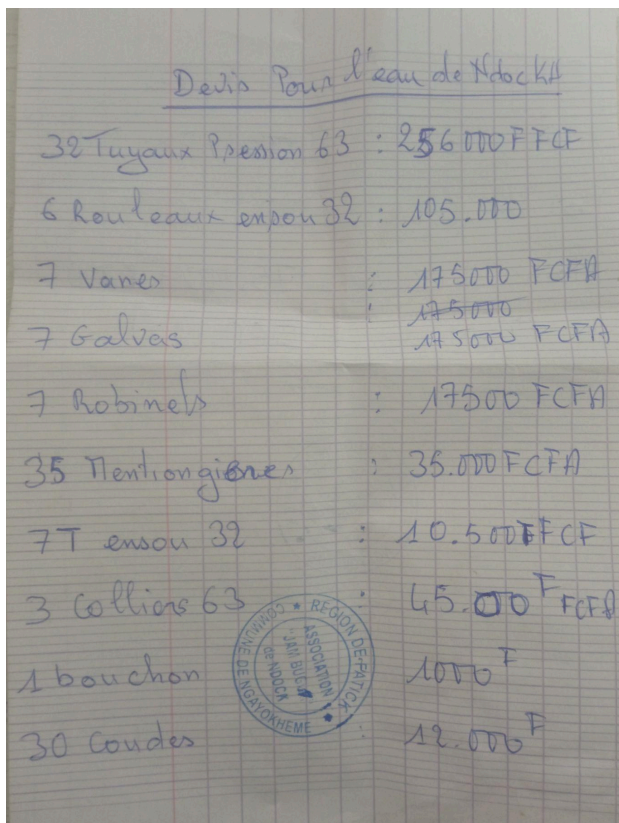 Devis Pour l'eau de NdockH
32 Tuyaux Pression 63 : 256000 F FCF
6 Rouleaux ensou 32 : 105.000
7 Vanes : 175000 FCFA
: 175000
7 Galvas 175000 FCFA
7 Robinets : 17500 FCFA
35 : 35.000 FCFA
7 T ensou 32 : 10.500 F FCF
3 Colliers 63 : 45.000 F FCFA
1 bouchon 1000 F
30 Coudes : 12.000 F
REGION DE-FATICK
COMMUNE DE NGAYOKHEME
ASSOCIATION
"JAM BUGUM"
DE NDOCK